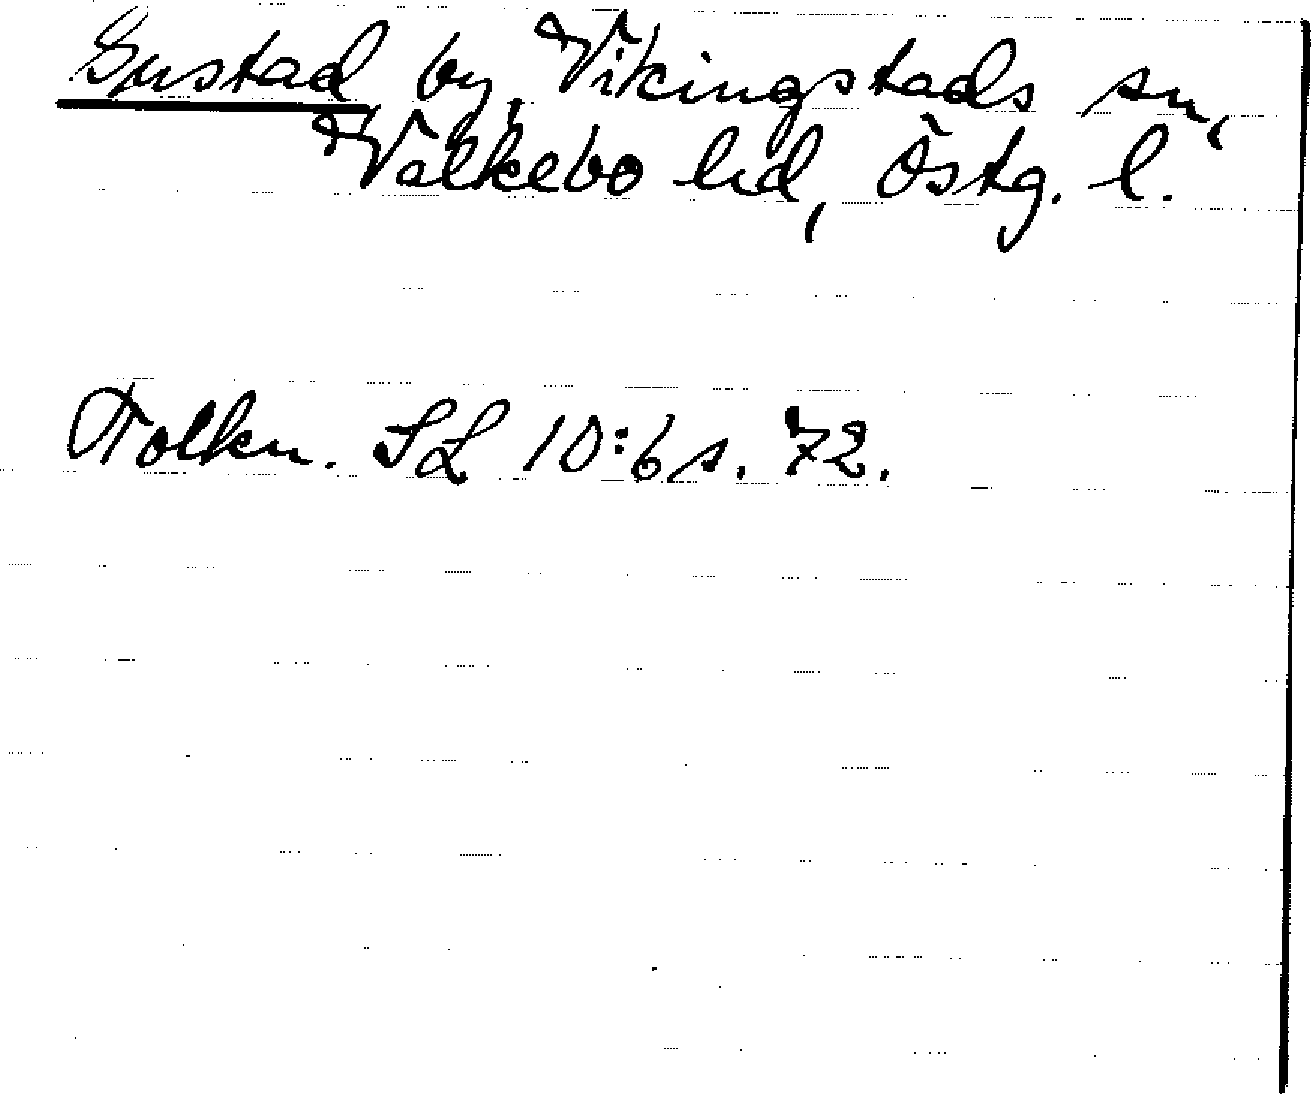 Gustad by, Vikingstads sn,
Valkebo hd, Östg. l.
Folkn. SL 10:6 s. 72.